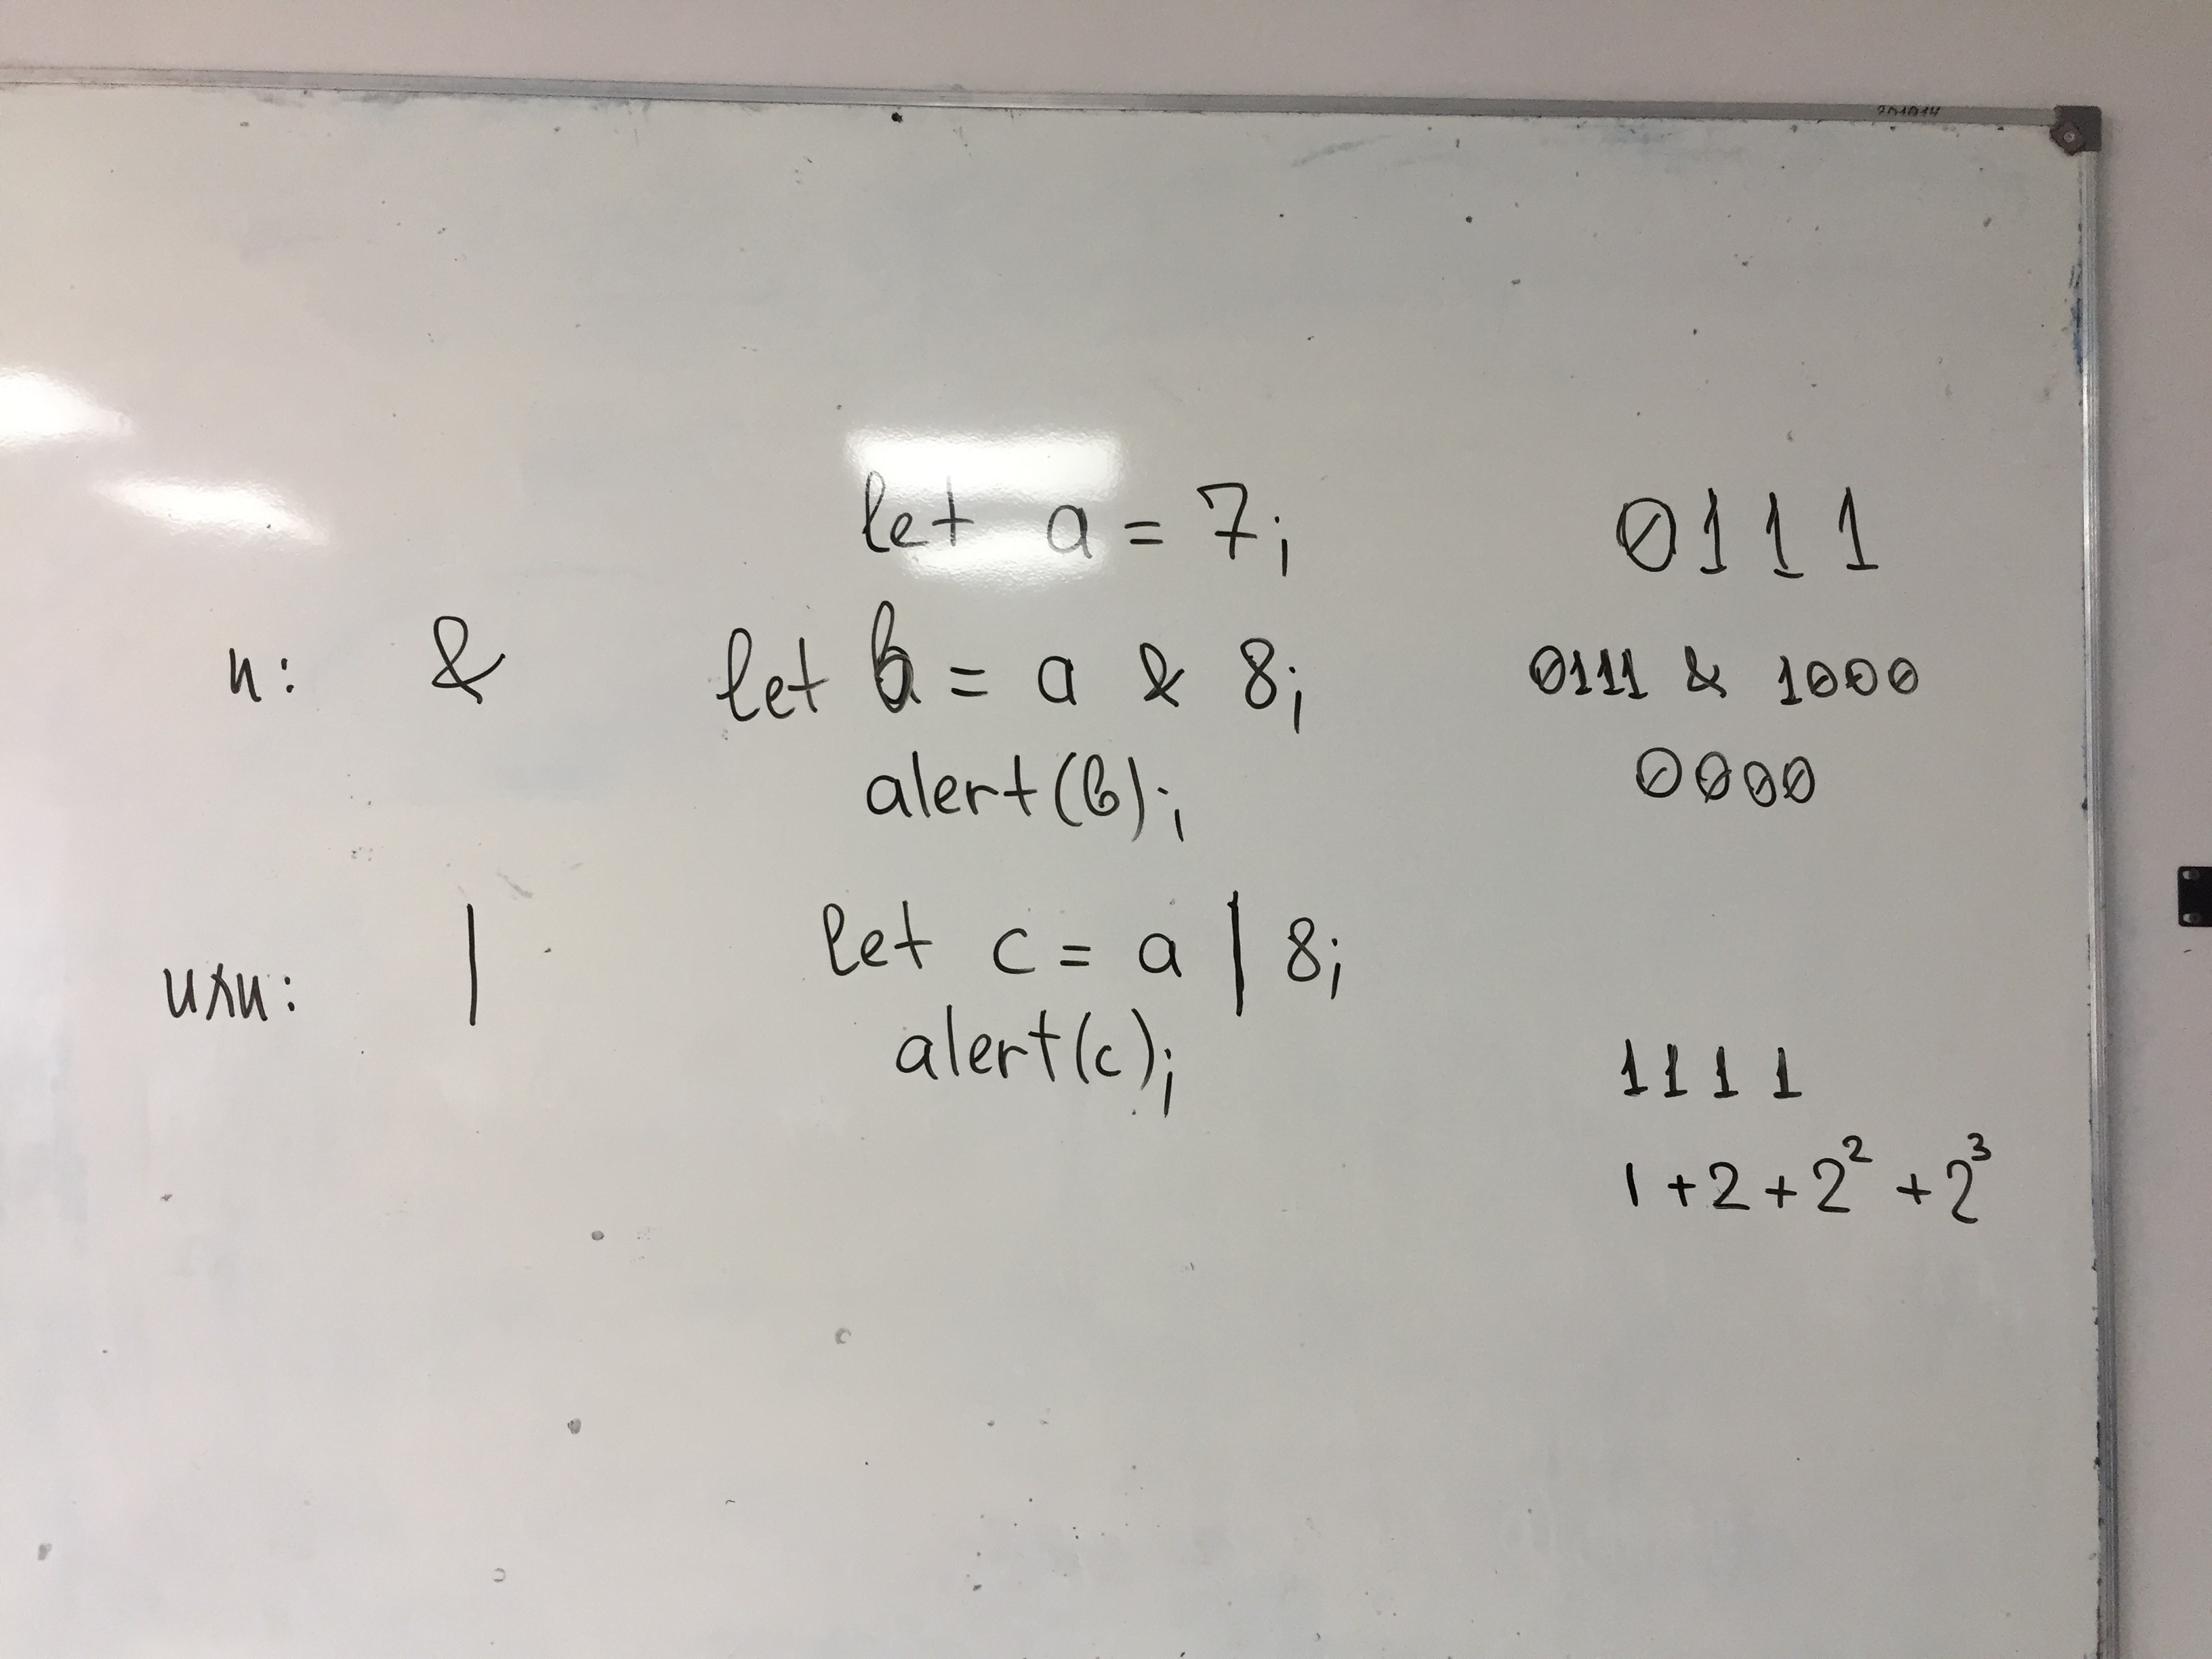 let a = 7; 0111
и: & let b = a & 8; 0111 & 1000
alert(b); 0000
или: | let c = a | 8;
alert(c); 1111
1 + 2 + 2² + 2³